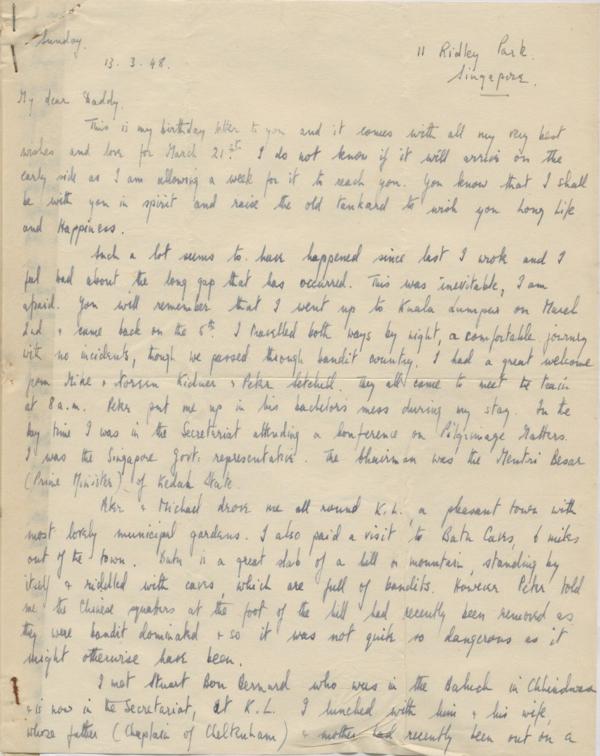 Sunday.
13.3.48.
11 Ridley Park.
Singapore.
My dear Daddy,
This is my birthday letter to you and it comes with all my very best
wishes and love for March 21st. I do not know if it will arrive on the
early side as I am allowing a week for it to reach you. You know that I shall
be with you in spirit and raise the old tankard to wish you Long Life
and Happiness.
Such a lot seems to have happened since last I wrote and I
feel bad about the long gap that has occurred. This was inevitable, I am
afraid. You will remember that I went up to Kuala Lumpur on March
2nd + came back on the 5th. I travelled both ways by night, a comfortable journey
with no incidents, though we passed through bandit country. I had a great welcome
from Mike + Noreen Kidner + Peter. They all came to meet the train
at 8 a.m. Peter put me up in his bachelors mess during my stay. In the
day time I was in the Secretariat attending a conference on Pilgrimage Matters.
I was the Singapore Govt. representative. The Chairman was the Mentri Besar
(Prime Minister) of Kedah State.
Peter + Michael drove me all round K.L., a pleasant town with
most lovely municipal gardens. I also paid a visit to Batu Caves, 6 miles
out of the town. Batu is a great slab of a hill or mountain, standing by
itself + riddled with caves, which are full of bandits. However Peter told
me the Chinese squatters at the foot of the hill had recently been removed as
they were bandit dominated + so it was not quite so dangerous as it
might otherwise have been.
I met Stuart Bon Bernard who was in the Baluch in Chhindwara
+ is now in the Secretariat, at K.L. I lunched with him + his wife,
whose father (Chaplain of Cheltenham) + mother had recently been out on a